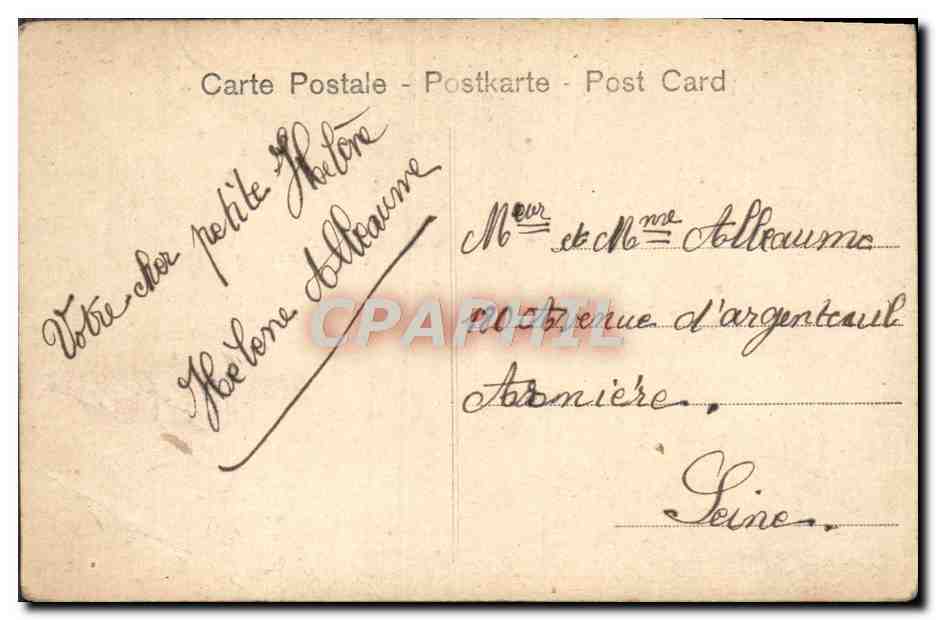 Carte Postale - Postkarte - Post Card
Votre cher petite Hélène
Hélène Alleaume
Meur et Mme Alleaume
120 Avenue d'argenteuil
Asnière.
Seine.
CPAPHIL